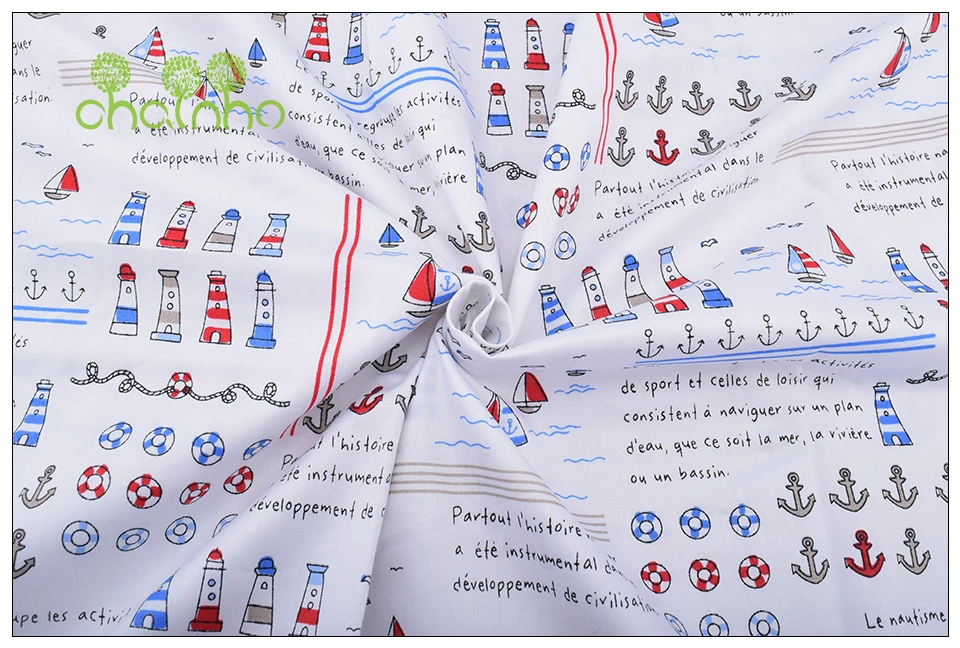 ou un bassin.
chainho
ans le
Partout l'
de spo
consistent regroupe les activités
a été instrumental
d'eau, que ce soit sur un plan
développement de civilisat
bassin.
mer, rivière
Partout l'histoi dans le
a été ins naviguer
développement de civilisation
Partout l'histoire na
a été instrumental
développement de
activités
de sport et celles de loisir qui
consistent à naviguer sur un plan
d'eau, que ce soit la mer, la rivière
ou un bassin.
l'histoire
été instrument
développement de c
Partout l'histoire
a été instrumental da
développement de civilisation
upe les activi
Le nautisme